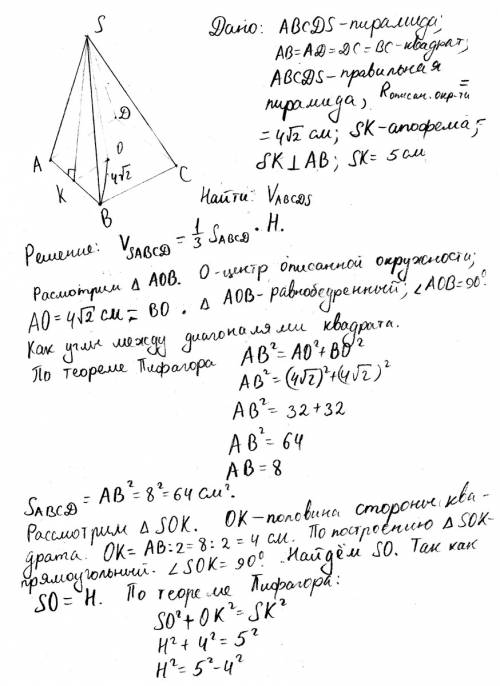 S
A
K
B
C
D
O
4√2
Дано: ABCDS - пирамида;
AB=AD=DC=BC - квадрат;
ABCDS - правильная
пирамида, Rописан. окр-ти =
= 4√2 см; SK - апофема;
SK ⊥ AB; SK = 5 см
Найти: VABCDS
Решение: VSABCD = 1/3 SABCD · H.
Расмотрим △ AOB. O - центр описанной окружности;
AO = 4√2 см = BO. △ AOB - равнобедренный; ∠AOB = 90°.
Как углы между диагоналями квадрата.
По теореме Пифагора AB² = AO² + BO²
AB² = (4√2)² + (4√2)²
AB² = 32 + 32
AB² = 64
AB = 8
SABCD = AB² = 8² = 64 см².
Рассмотрим △ SOK. OK - половина стороны ква-
драта. OK = AB:2 = 8:2 = 4 см. По построению △ SOK -
прямоугольный. ∠SOK = 90°. Найдём SO. Так как
SO = H. По теореме Пифагора:
SO² + OK² = SK²
H² + 4² = 5²
H² = 5² - 4²